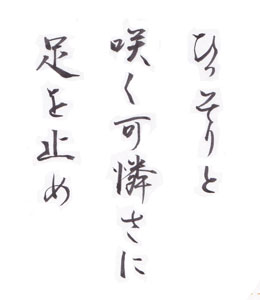 ひっそりと
咲く可憐さに
足を止め